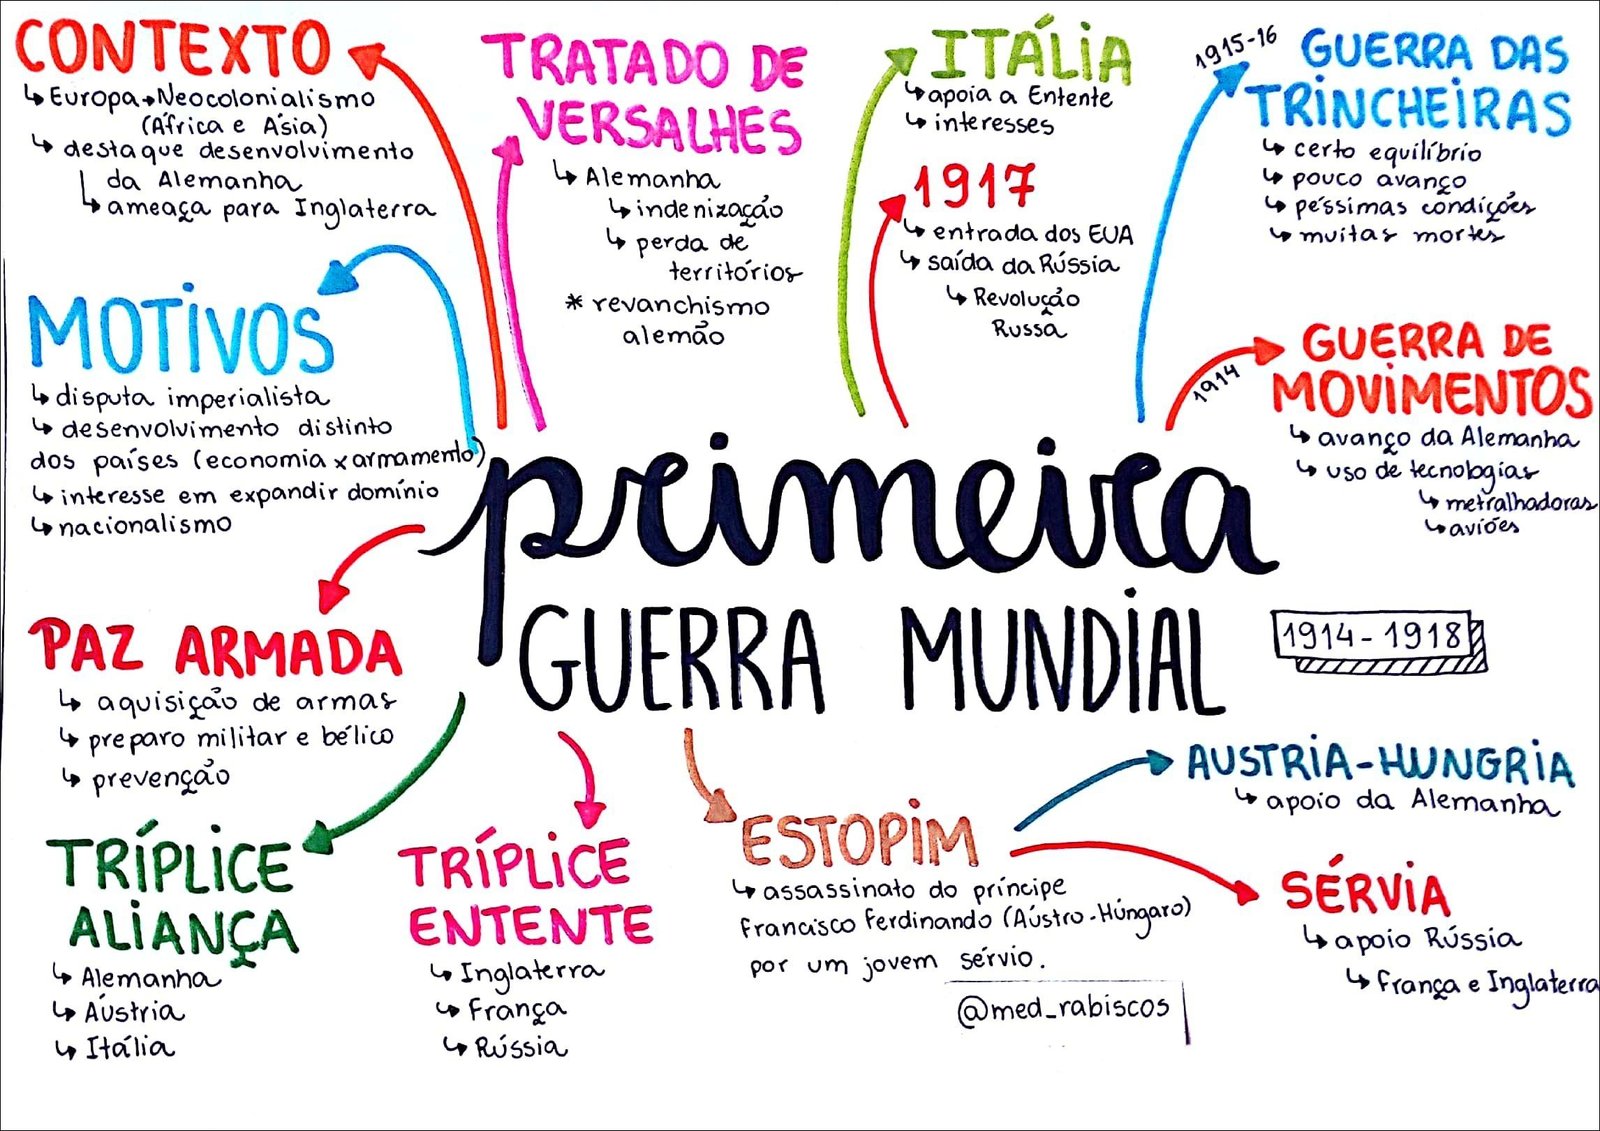 CONTEXTO
↳ Europa → Neocolonialismo
(África e Ásia)
↳ destaque desenvolvimento
da Alemanha
↳ ameaça para Inglaterra
MOTIVOS
↳ disputa imperialista
↳ desenvolvimento distinto
dos países (economia x armamento)
↳ interesse em expandir domínio
↳ nacionalismo
PAZ ARMADA
↳ aquisição de armas
↳ preparo militar e bélico
↳ prevenção
TRÍPLICE
ALIANÇA
↳ Alemanha
↳ Áustria
↳ Itália
TRÍPLICE
ENTENTE
↳ Inglaterra
↳ França
↳ Rússia
TRATADO DE
VERSALHES
↳ Alemanha
↳ indenização
↳ perda de
territórios
* revanchismo
alemão
ITÁLIA
↳ apoia a Entente
↳ interesses
1917
↳ entrada dos EUA
↳ saída da Rússia
↳ Revolução
Russa
1915-16
GUERRA DAS
TRINCHEIRAS
↳ certo equilíbrio
↳ pouco avanço
↳ péssimas condições
↳ muitas mortes
1914
GUERRA DE
MOVIMENTOS
↳ avanço da Alemanha
↳ uso de tecnologias
↳ metralhadoras
↳ aviões
primeira
GUERRA MUNDIAL
1914-1918
ESTOPIM
↳ assassinato do príncipe
Francisco Ferdinando (Áustro-Húngaro)
por um jovem sérvio.
AUSTRIA-HUNGRIA
↳ apoio da Alemanha
SÉRVIA
↳ apoio Rússia
↳ França e Inglaterra
@med_rabiscos